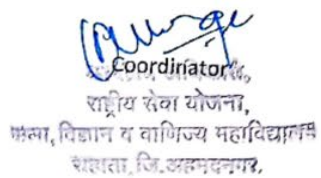 Coordinator
राष्ट्रीय सेवा योजना,
कला, विज्ञान व वाणिज्य महाविद्यालय
राहाता, जि.अहमदनगर.